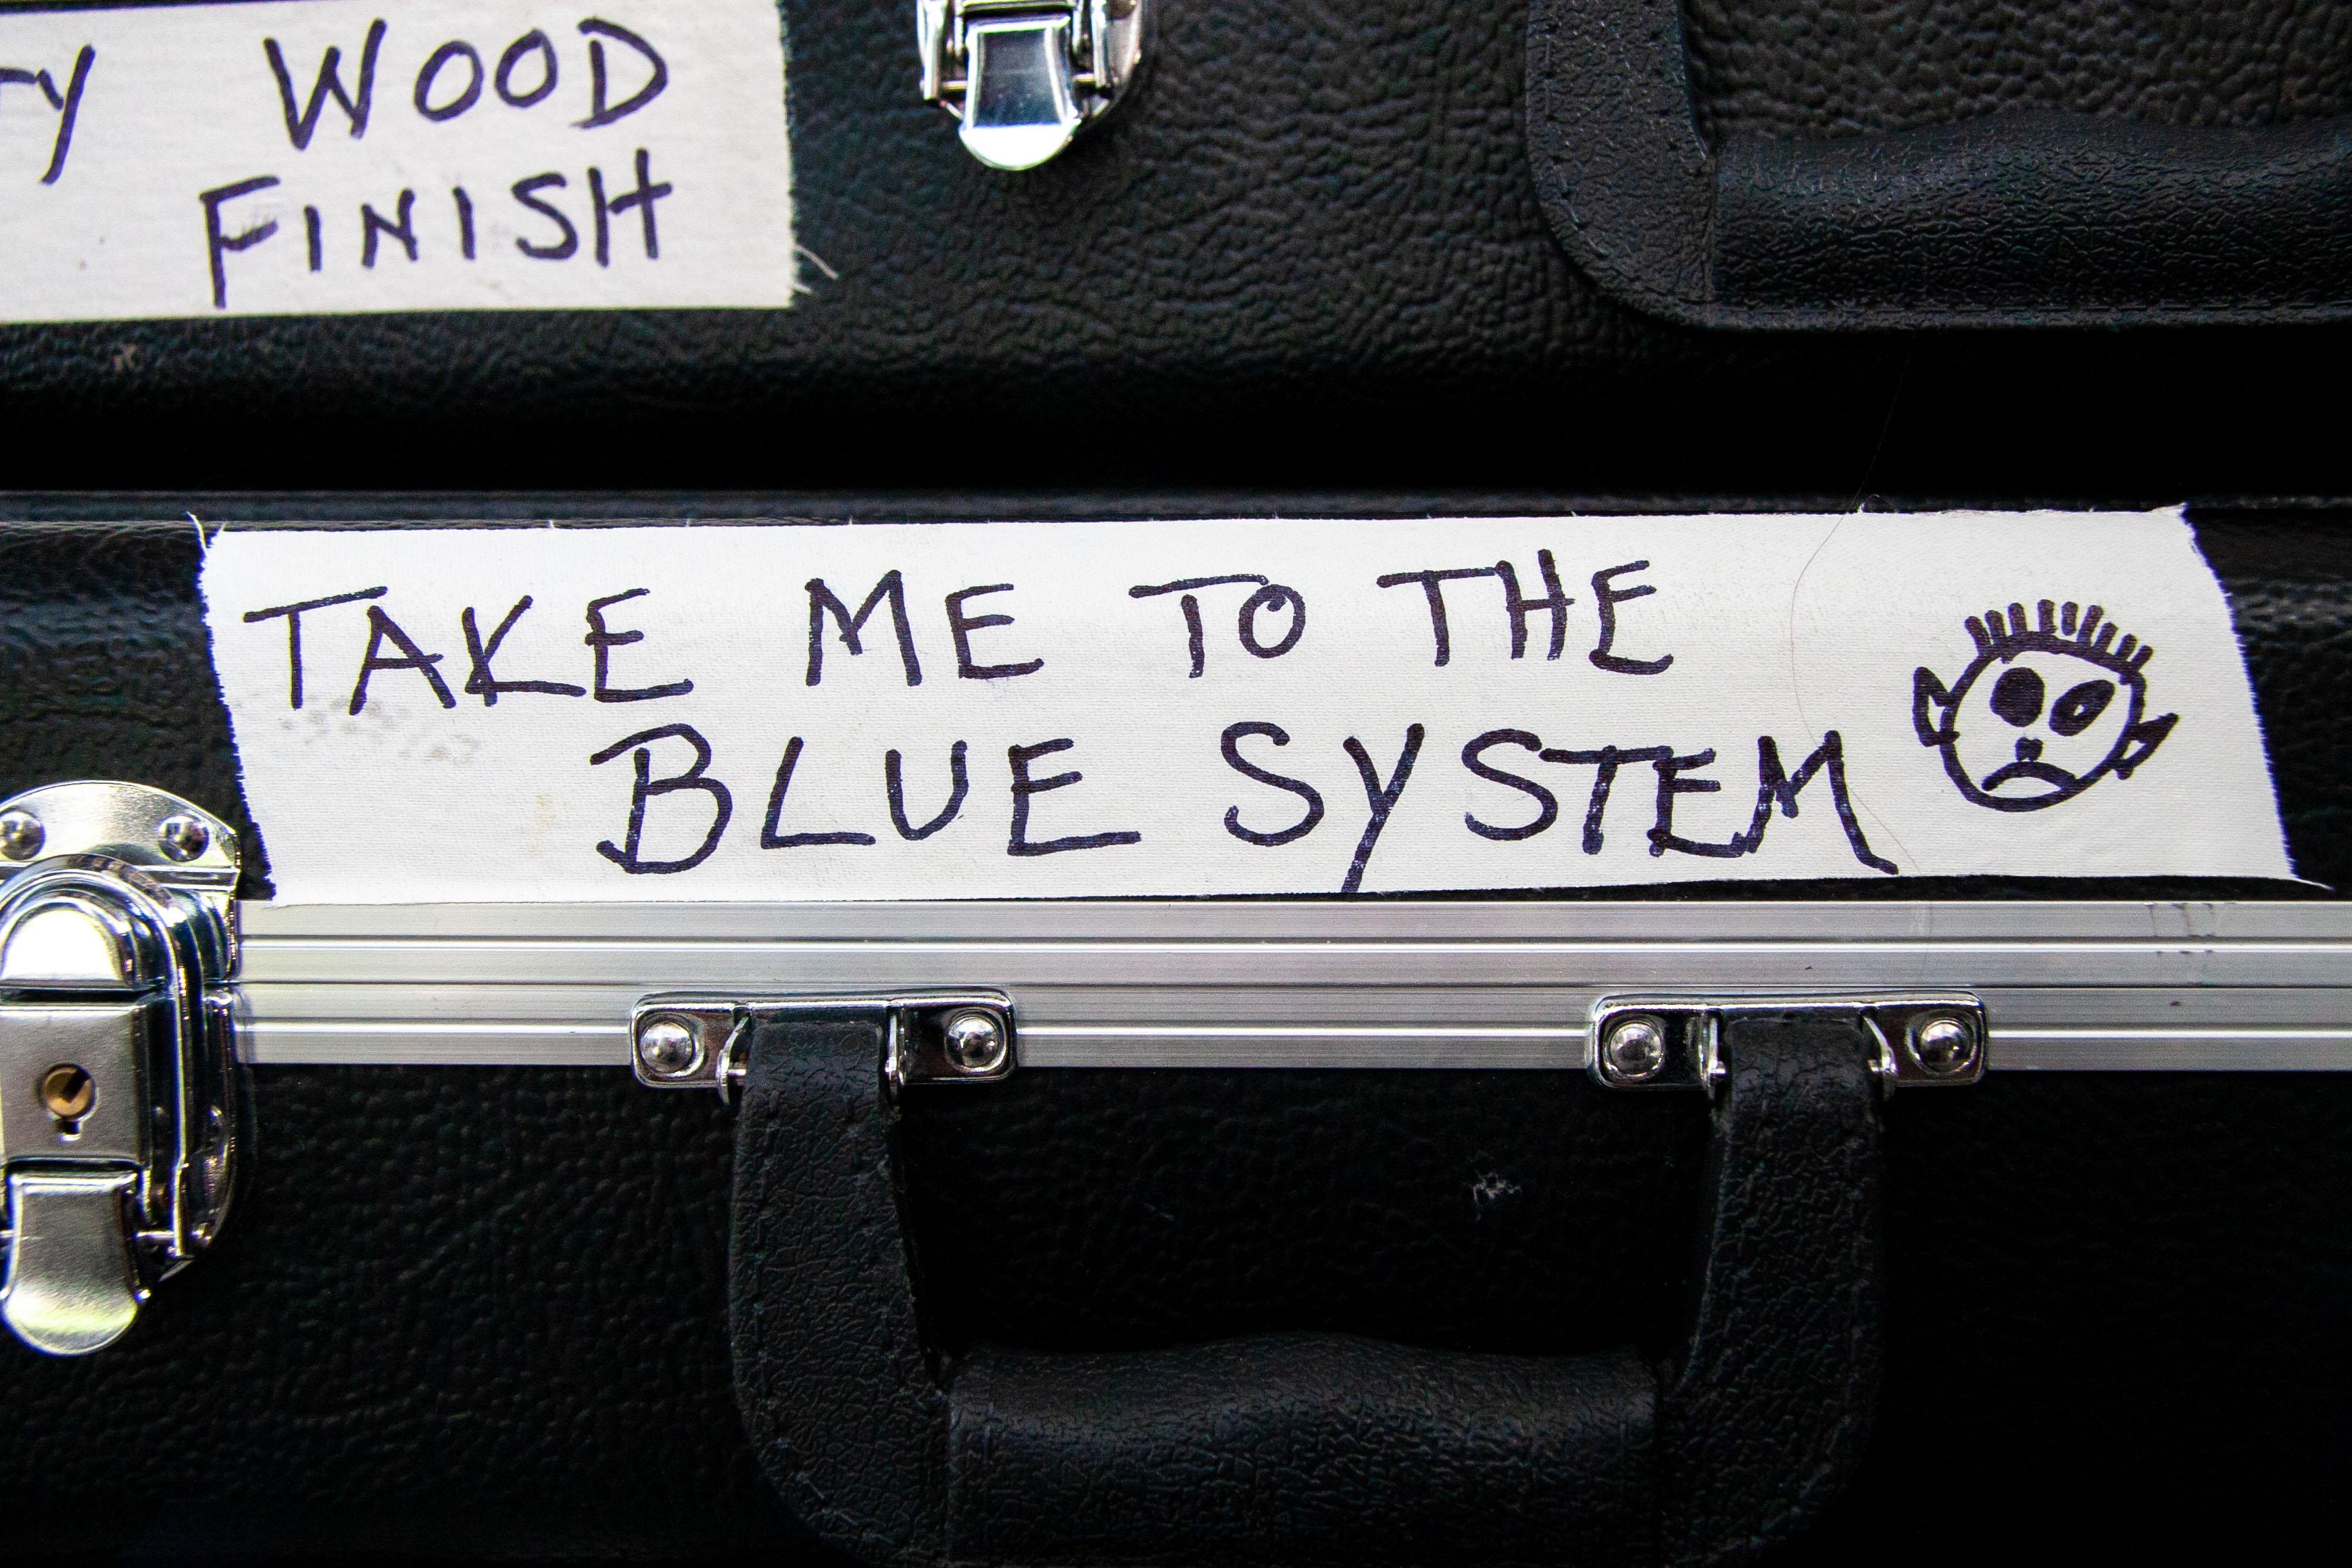 WOOD
FINISH
TAKE ME TO THE
BLUE SYSTEM